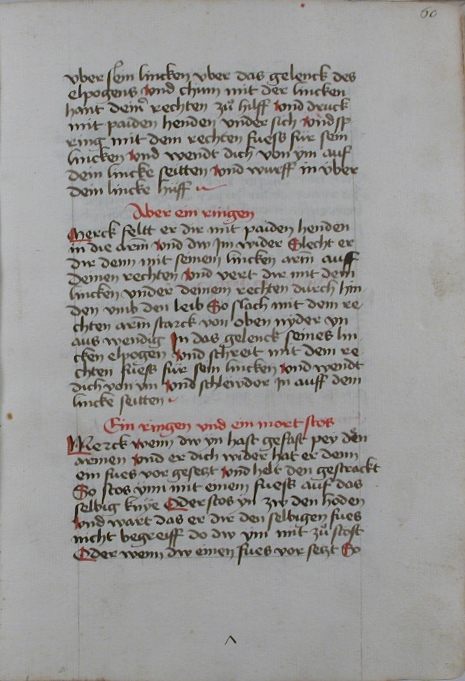 60
vber sein lincken vber das gelenck des
elpogens vnd chum mit der lincken
hant deiner rechten zu hilff vnd druck
mit paiden henden vnder sich vnd sp
ring mit dem rechten fuess fur sein
lincken vnd wendt dich von ym auf
dein lincke seitten vnd wurff in vber
dein lincke hüff
Aber ein ringen
Merck felt er dir mit paiden henden
in die arm vnd dw Im wider Slecht er
dir dein mit seinem lincken arm auff
deinen rechten vnd vert dir mit dem
lincken vnder deinem rechten durch hin
den vmb den leib So slach mit dem re
chten arm starck von oben nyder von
aus wendig In das gelenck seines lin
cken elpogen vnd schreit mit dem re
chten fuess fur sein lincken vnd wendt
dich von ym vnd schlewder in auff dein
lincke seitten
Ein ringen vnd ein mort stos
Merck wenn dw yn hast gefast pey den
armen vnd er dich wider hat er denn
ein fues vor gesetzt vnd helt den gestrackt
So stos ymi mit einem fuess auf das
selbig knye Oder stos yn zw den hoden
vnd wart das er dir den selbigen fues
nicht begreiff do dw ym mit zu stost
Oder wenn dw einen fues vor setzt So